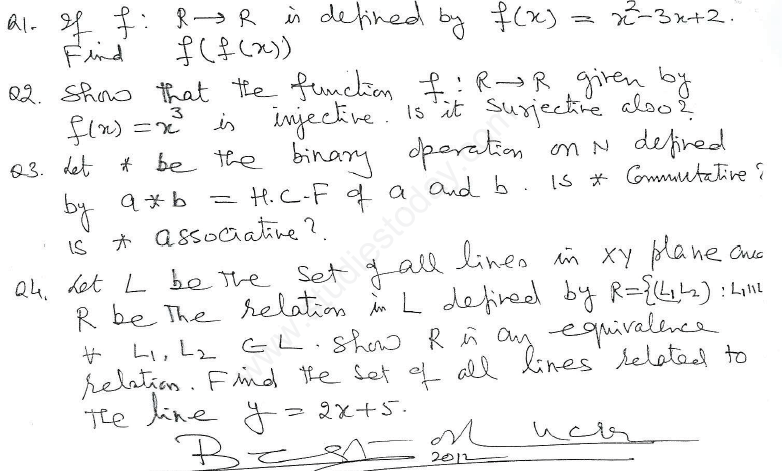 Q1. If f : R → R is defined by f(x) = x²-3x+2.
Find f(f(x))
Q2. Show that the function f : R → R given by
f(x) = x³ is injective. Is it surjective also?
Q3. Let * be the binary operation on N defined
by a * b = H.C.F of a and b. Is * Commutative?
is * associative?
Q4. Let L be the set of all lines in XY plane and
R be the relation in L defined by R={(L1,L2) : L1||L
∀ L1, L2 ∈ L. Show R is an equivalence
relation. Find the set of all lines related to
the line y = 2x+5.
Best of
2012
www.studiestoday.com